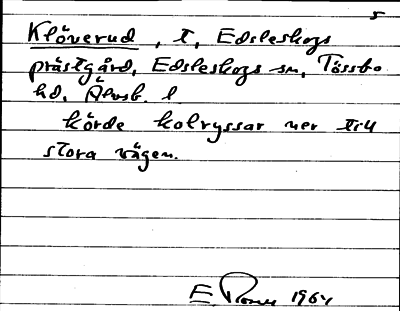 5
Klöverud, t, Edsleskogs
prästgård, Edsleskogs sn, Tössbo
hd, Älvsb. l
körde kolryssar ner till
stora vägen.
E 1964